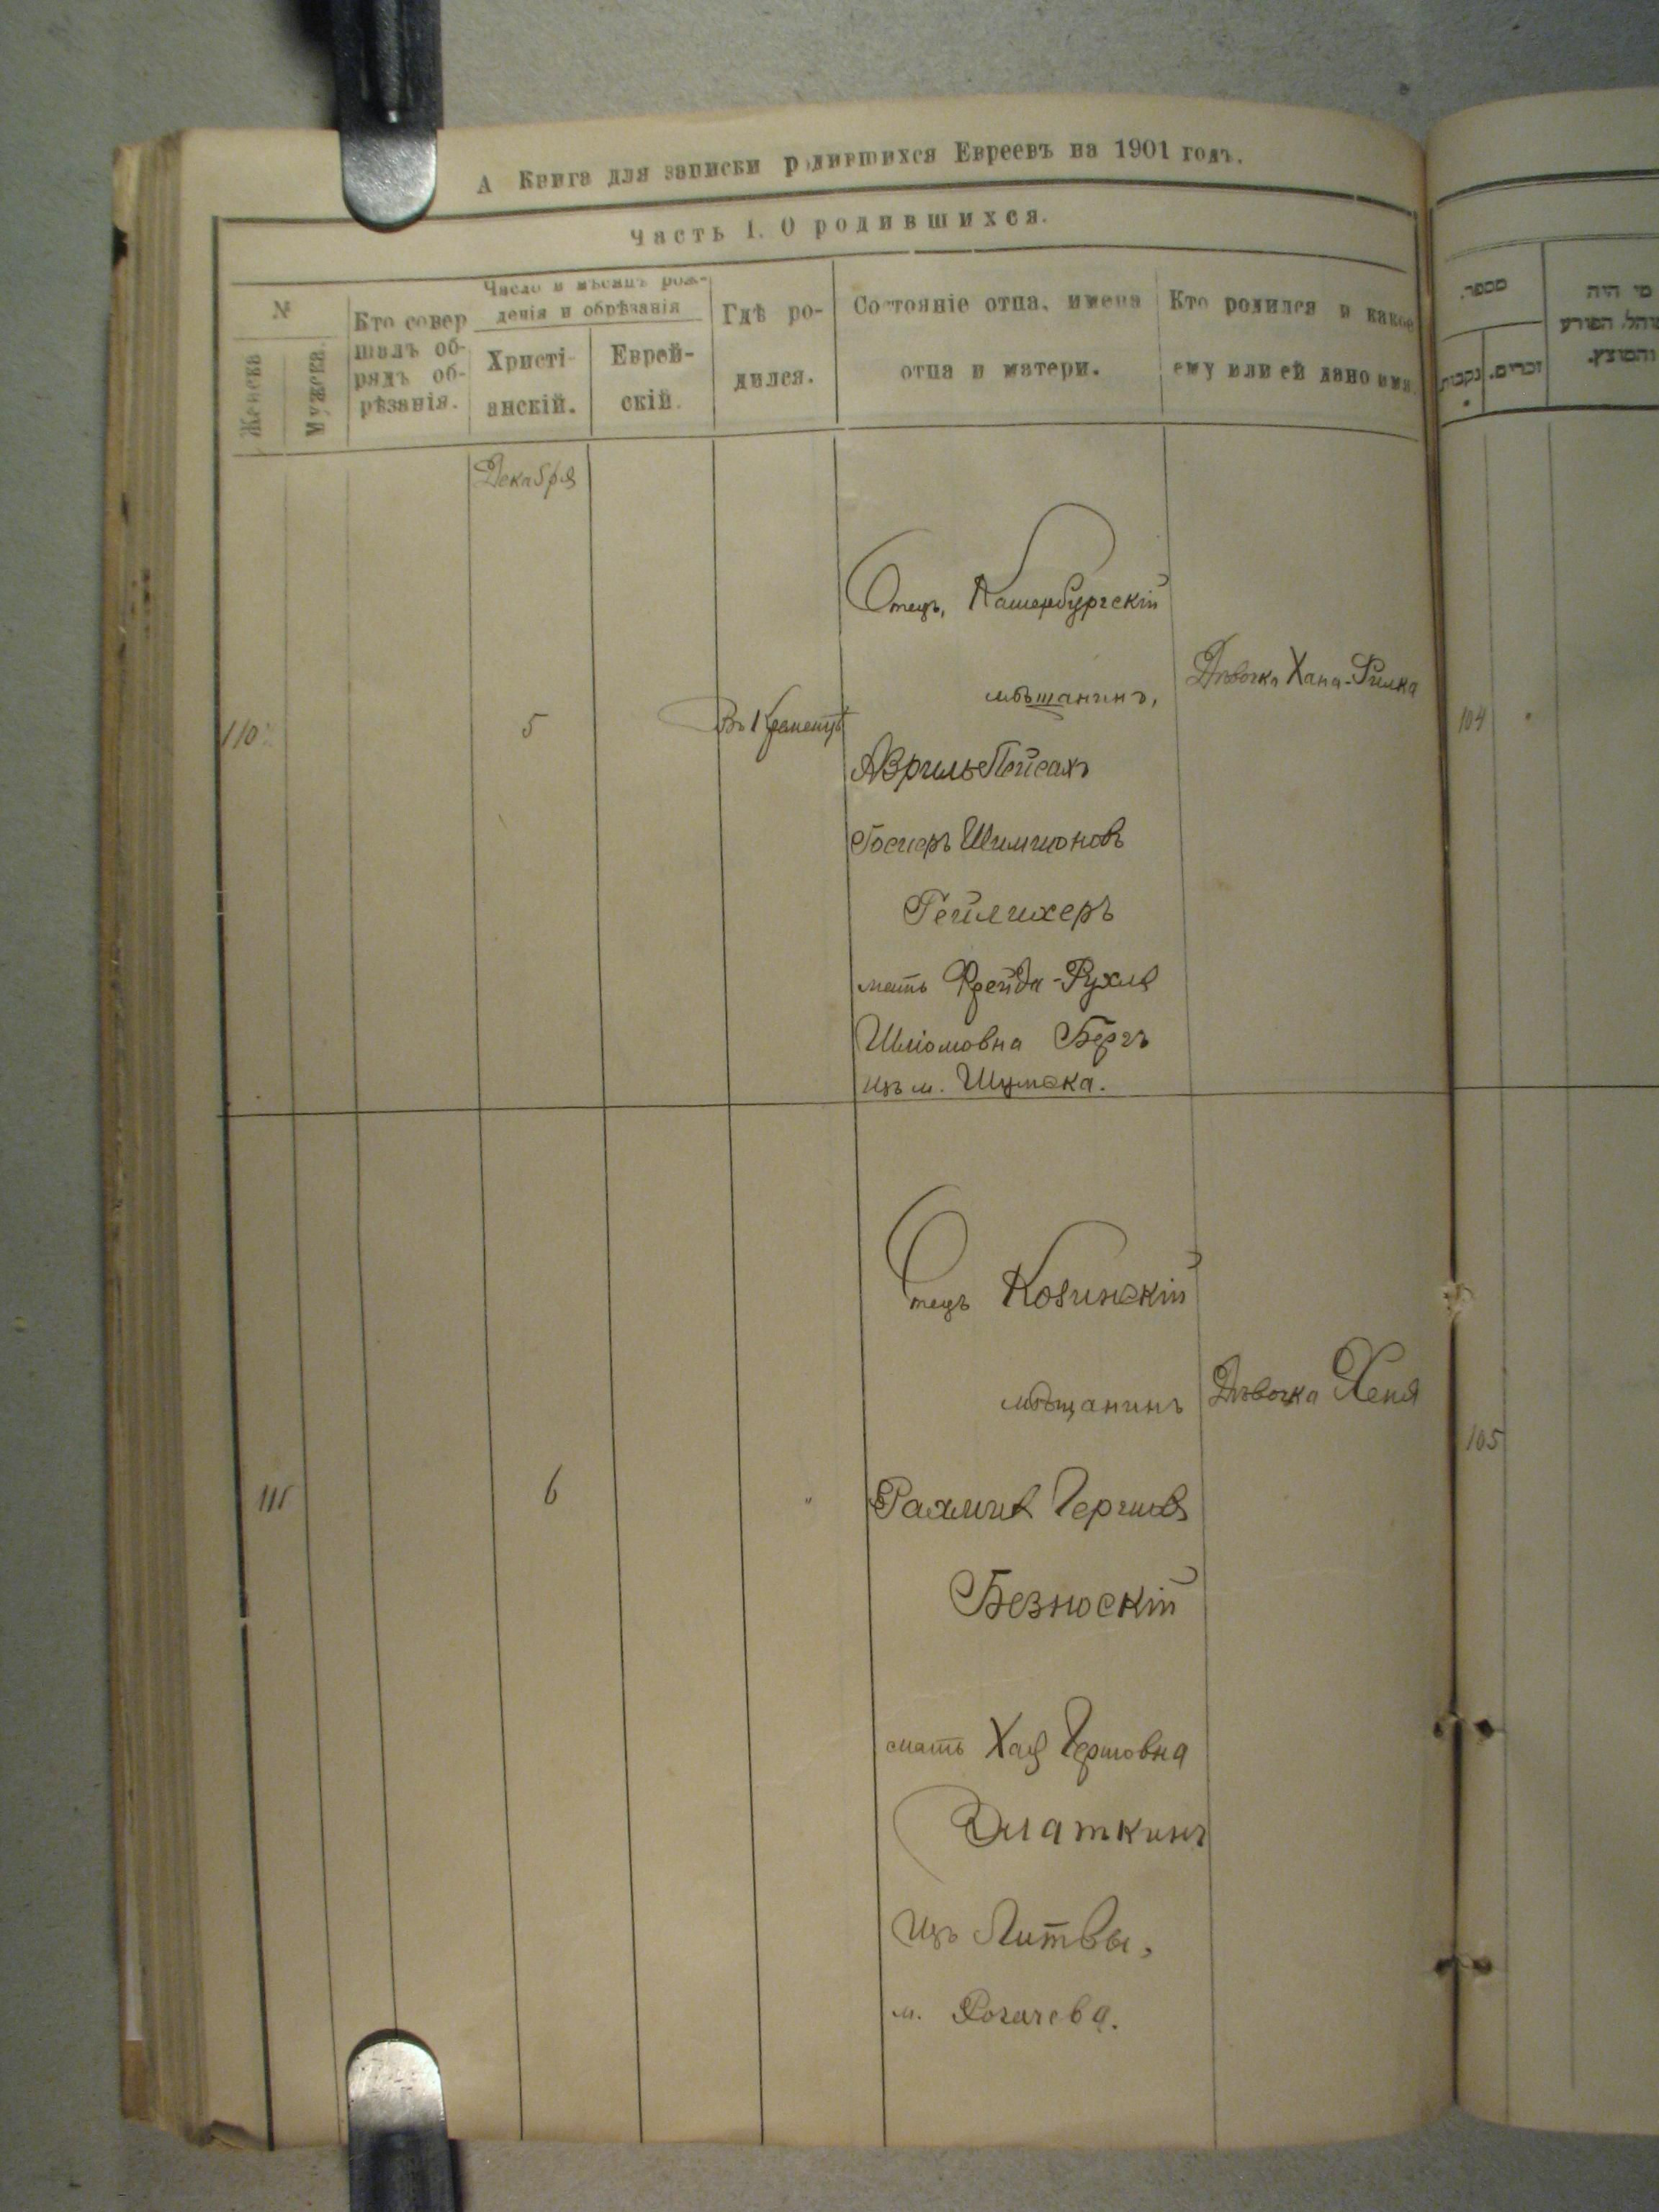 А Книга для записки родившихся Евреевъ на 1901 годъ.
Часть 1. О родившихся.
№
Женска
Мужска.
Кто совер
шилъ об-
рядъ об-
рѣзанія.
Число и мѣсяцъ рож-
денія и обрѣзанія
Христі-
анскій.
Еврей-
скій.
Гдѣ ро-
дился.
Состояніе отца, имена
отца и матери.
Кто родился и какое
ему или ей дано имя.
Декабря
110
5
Въ Кременцѣ
Отецъ,
мѣщанинъ,
Пейсахъ
Шимшоновъ
Гейлихеръ
мать Фрейда-Рухля
Шліомовна Бергъ
изъ м. Шумска.
Дѣвочка Хана-
111
6
"
Отецъ Козинскій
мѣщанинъ
Рахмиль Гершковъ
Безноскій
мать Хая Гершовна
изъ Литвы,
м. Рогачева.
Дѣвочка Хеня
מספר.
נקבות
זכרים.
מי היה
המוהל. הפורע
והמוצץ.
104
105